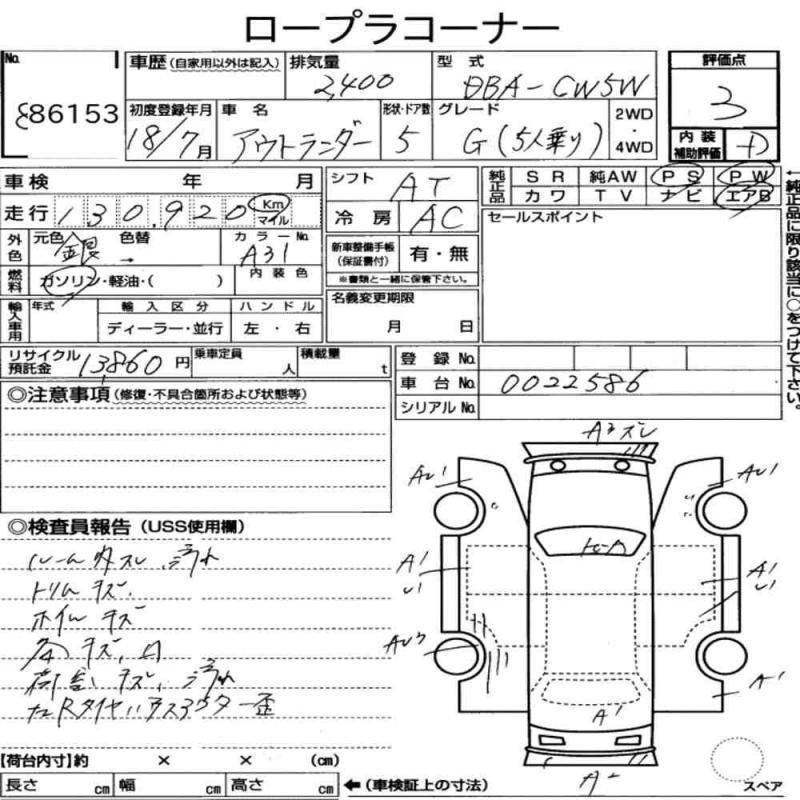 ロープラコーナー
No. 86153
車歴(自家用以外は記入) 排気量 2,400 型式 DBA-CW5W 評価点 3
初度登録年月 18/7月 車名 アウトランダー 形状・ドア数 5 グレード G(5人乗り) 2WD・4WD
内装補助評価 D
車検 年 月 シフト AT 純正品 SR 純AW PS PW
カワ TV ナビ エアB
走行 130,920 Km マイル 冷房 AC セールスポイント
外色 元色 銀 色替 → カラーNo. A31 新車整備手帳(保証書付) 有・無
※書類と一緒に保管下さい。
燃料 ガソリン・軽油・( ) 内装色
輸入車用 年式 輸入区分 ハンドル 名義変更期限
ディーラー・並行 左・右 月 日
リサイクル預託金 13,860円 乗車定員 人 積載量 t 登録No.
車台No. 0022586
シリアルNo.
←純正品に限り該当に○をつけて下さい。
◎注意事項(修復・不具合箇所および状態等)
◎検査員報告(USS使用欄)
ルーム内スレ、汚れ
トリムキズ
ホイルキズ
キズ、凹
キズ、汚れ
A3 ズレ
AU1 AU1
A1 A1
A1
A1
スペア
【荷台内寸】約 × × (cm)
長さ cm 幅 cm 高さ cm ←(車検証上の寸法)